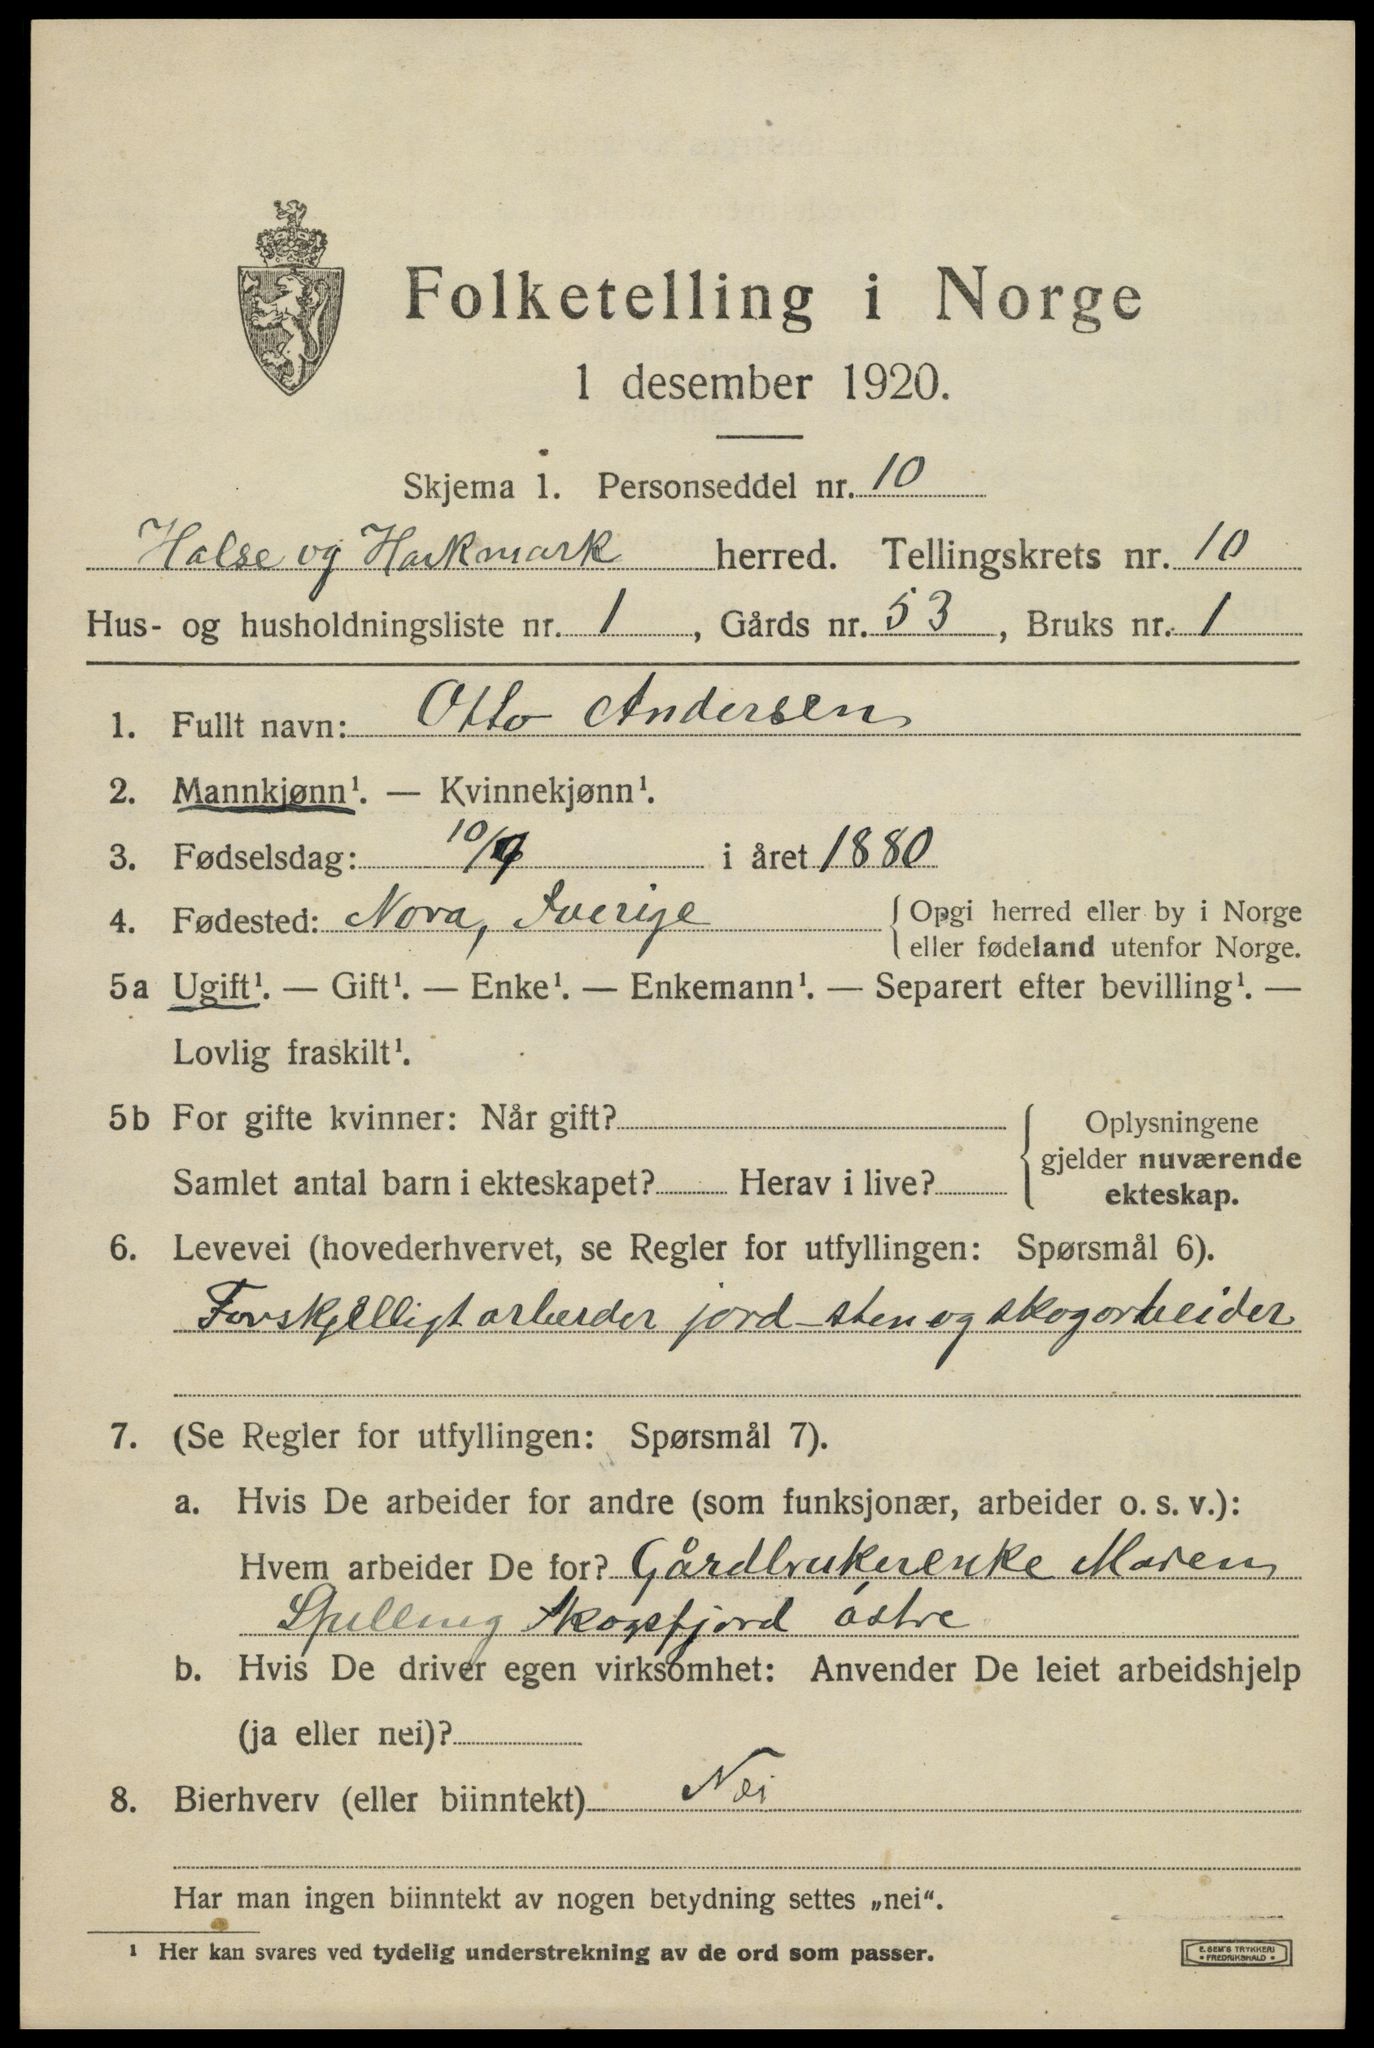 Folketelling i Norge
1 desember 1920.
Skjema 1. Personseddel nr. 10
Halse og Harkmark herred. Tellingskrets nr. 10
Hus- og husholdningsliste nr. 1, Gårds nr. 53, Bruks nr. 1
1. Fullt navn: Otto Andersen
2. Mannkjønn¹. — Kvinnekjønn¹.
3. Fødselsdag: 10/9 i året 1880
4. Fødested: Nora, Sverige {Opgi herred eller by i Norge
eller fødeland utenfor Norge.
5a Ugift¹. — Gift¹. — Enke¹. — Enkemann¹. — Separert efter bevilling¹. —
Lovlig fraskilt¹.
5b For gifte kvinner: Når gift? { Oplysningene
gjelder nuværende
Samlet antal barn i ekteskapet? Herav i live? ekteskap.
6. Levevei (hovederhvervet, se Regler for utfyllingen: Spørsmål 6).
Forskjelligt arbeider jord-sten og skogarbeider
7. (Se Regler for utfyllingen: Spørsmål 7).
a. Hvis De arbeider for andre (som funksjonær, arbeider o. s. v.):
Hvem arbeider De for? Gårdbrukerenke Maren
Spilling Skogsfjord østre
b. Hvis De driver egen virksomhet: Anvender De leiet arbeidshjelp
(ja eller nei)?
8. Bierhverv (eller biinntekt) Nei
Har man ingen biinntekt av nogen betydning settes „nei“.
¹ Her kan svares ved tydelig understrekning av de ord som passer.
E. SEM'S TRYKKERI
• FREDRIKSHALD •